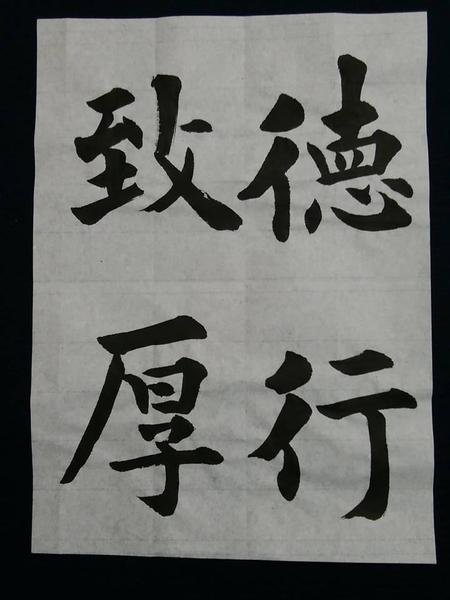 徳行
致厚